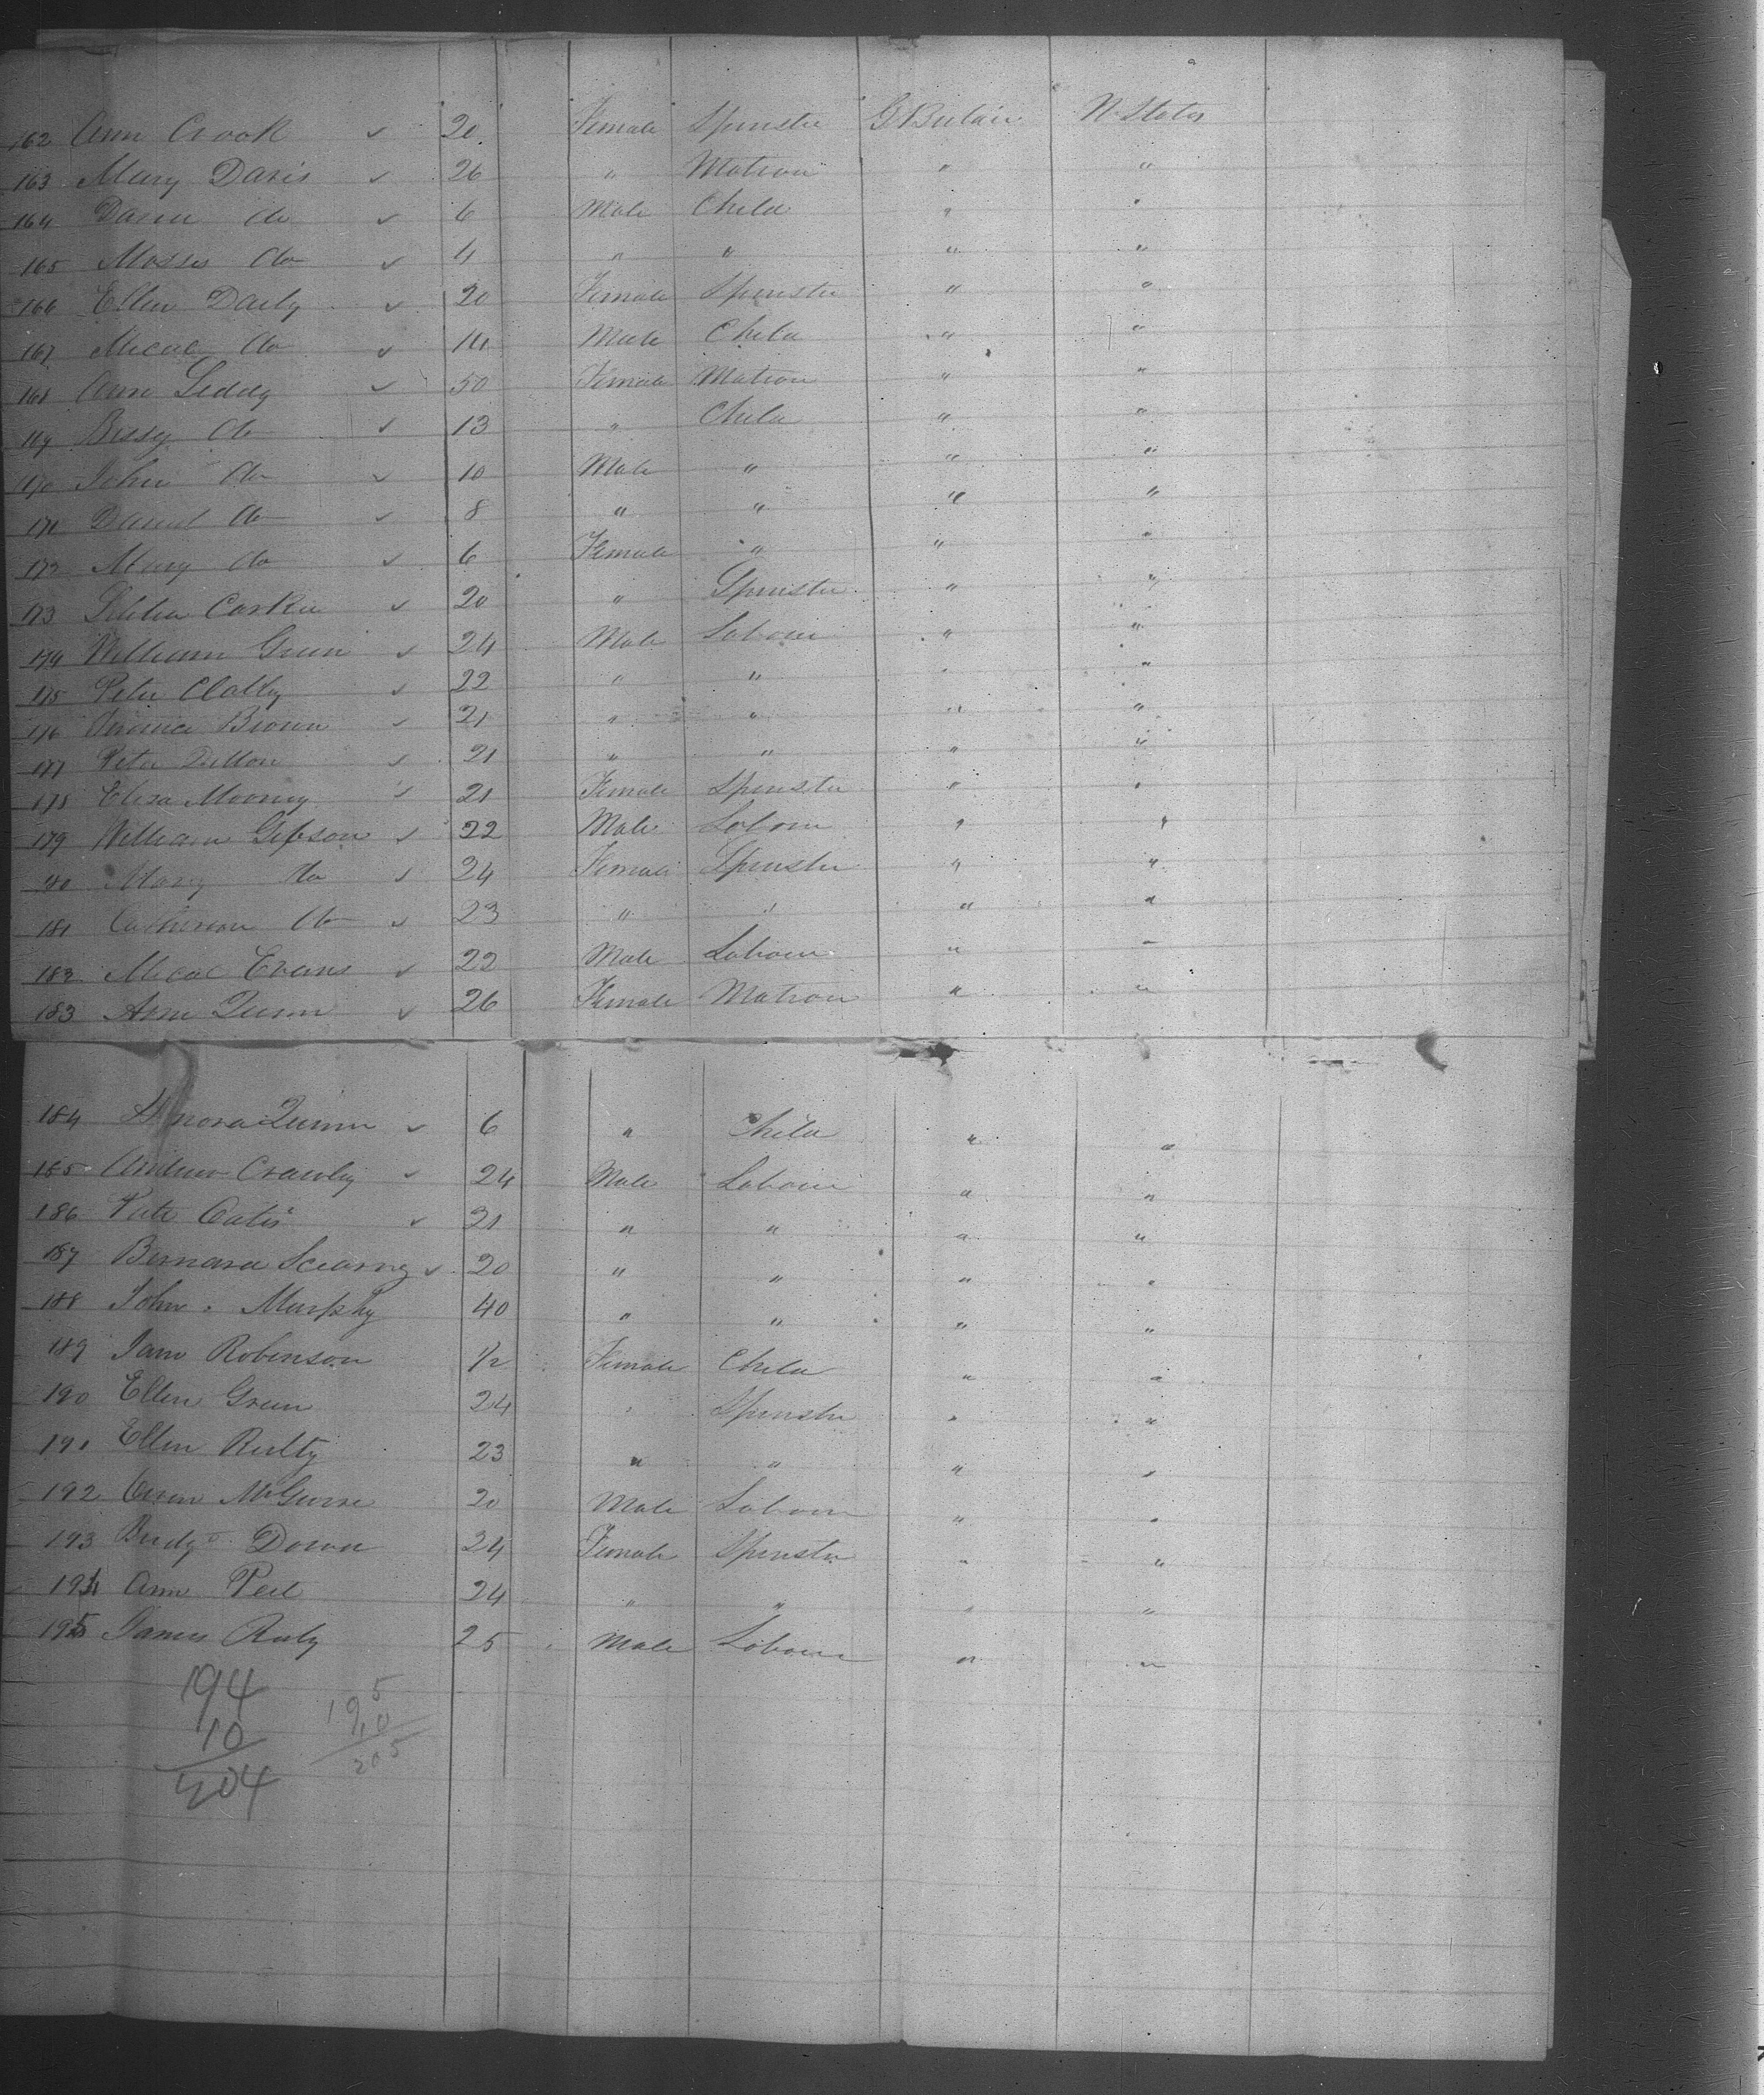 162 Ann Crook ✓ 20 Female Spinster G Britain U States
163 Mary Davis ✓ 26 " Matron " "
164 do ✓ 6 Male Child " "
165 Mosses do ✓ 4 " " " "
166 Ellen Daily ✓ 20 Female Spinster " "
167 Mical do ✓ 14 Male Child " "
168 Ann Leddy ✓ 50 Female Matron " "
169 Bessy do ✓ 13 " Child " "
170 John do ✓ 10 Male " " "
171 Daniel do ✓ 8 " " " "
172 Mary do ✓ 6 Female " " "
173 ✓ 20 " Spinster " "
174 William Green ✓ 24 Male Labour " "
175 Peter ✓ 22 " " " "
176 Brown ✓ 21 " " " "
177 Peter Dillon ✓ 21 " " " "
178 Eliza Mooney ✓ 21 Female Spinster " "
179 William Gibson ✓ 22 Male Labour " "
80 Mary do ✓ 24 Female Spinster " "
181 do ✓ 23 " " " "
182 Mical Evans ✓ 22 Male Labour " "
183 Ann Quinn ✓ 26 Female Matron " "
184 Quinn ✓ 6 " Child " "
185 Andrew Crawley ✓ 24 Male Labour " "
186 ✓ 21 " " " "
187 Bernard ✓ 20 " " " "
188 John Murphy 40 " " " "
189 Jane Robinson 1/2 Female Child " "
190 Ellen Green 24 " Spinster " "
191 Ellen 23 " " " "
192 Owen 20 Male Labour " "
193 Bridgt 24 Female Spinster " "
194 Ann 24 " " " "
195 James 25 Male Labour " "
194
10
204
195
10
205